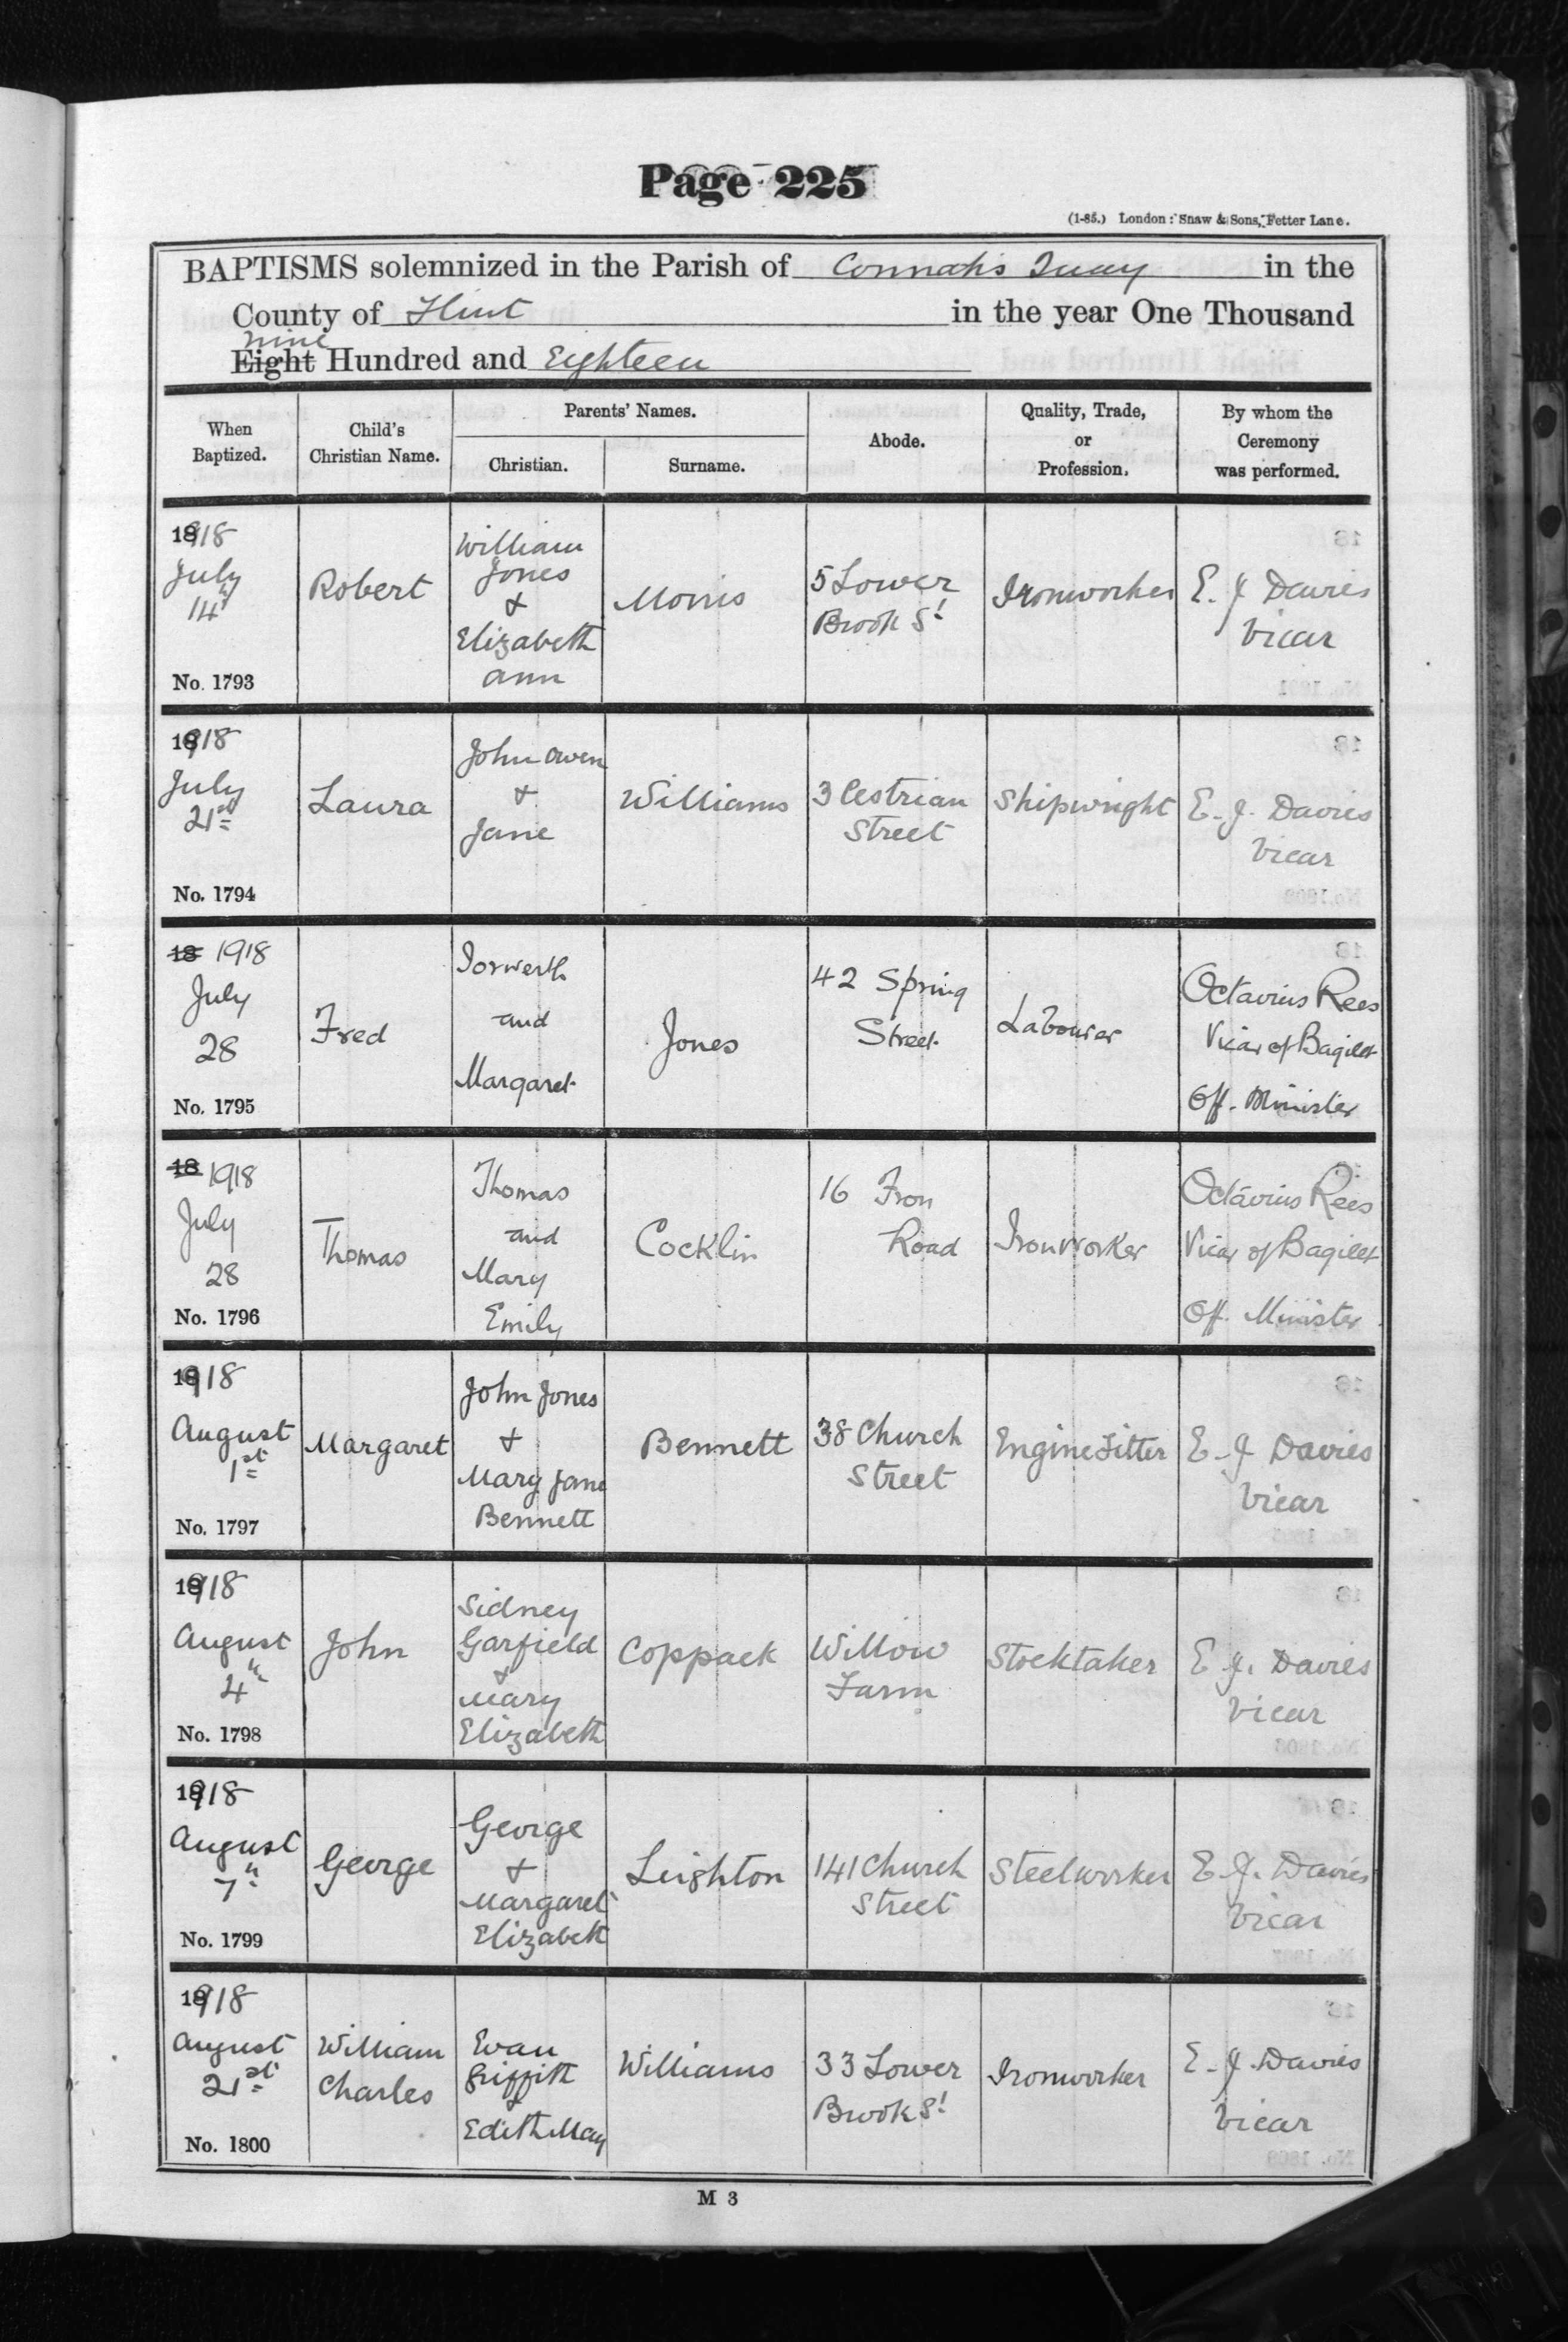 Page 225
(1-85.) London: Shaw & Sons, Fetter Lane.
BAPTISMS solemnized in the Parish of Connahs Quay in the
County of Flint in the year One Thousand
nine
Eight Hundred and Eighteen
When Baptized.
Child's Christian Name.
Parents' Names.
Christian.
Surname.
Abode.
Quality, Trade, or Profession.
By whom the Ceremony was performed.
1918
July
14th
No. 1793
Robert
William
Jones
&
Elizabeth
Ann
Morris
5 Lower
Brook St
Ironworker
E. J Davies
Vicar
1918
July
21st
No. 1794
Laura
John Owen
&
Jane
Williams
3 Cestrian
Street
Shipwright
E. J. Davies
Vicar
18 1918
July
28
No. 1795
Fred
Iorwerth
and
Margaret
Jones
42 Spring
Street
Labourer
Octavius Rees
Vicar of Bagillt
Off. Minister
18 1918
July
28
No. 1796
Thomas
Thomas
and
Mary
Emily
Cocklin
16 Iron
Road
Ironworker
Octavius Rees
Vicar of Bagillt
Off. Minister
1918
August
1st
No. 1797
Margaret
John Jones
&
Mary Jane
Bennett
Bennett
38 Church
Street
Engine Fitter
E. J Davies
Vicar
1918
August
4th
No. 1798
John
Sidney
Garfield
&
Mary
Elizabeth
Coppack
Willow
Farm
Stocktaker
E. J. Davies
Vicar
1918
August
7th
No. 1799
George
George
&
Margaret
Elizabeth
Leighton
141 Church
Street
Steelworker
E. J. Davies
Vicar
1918
August
21st
No. 1800
William
Charles
Evan
Griffith
&
Edith May
Williams
33 Lower
Brook St
Ironworker
E. J. Davies
Vicar
M 3